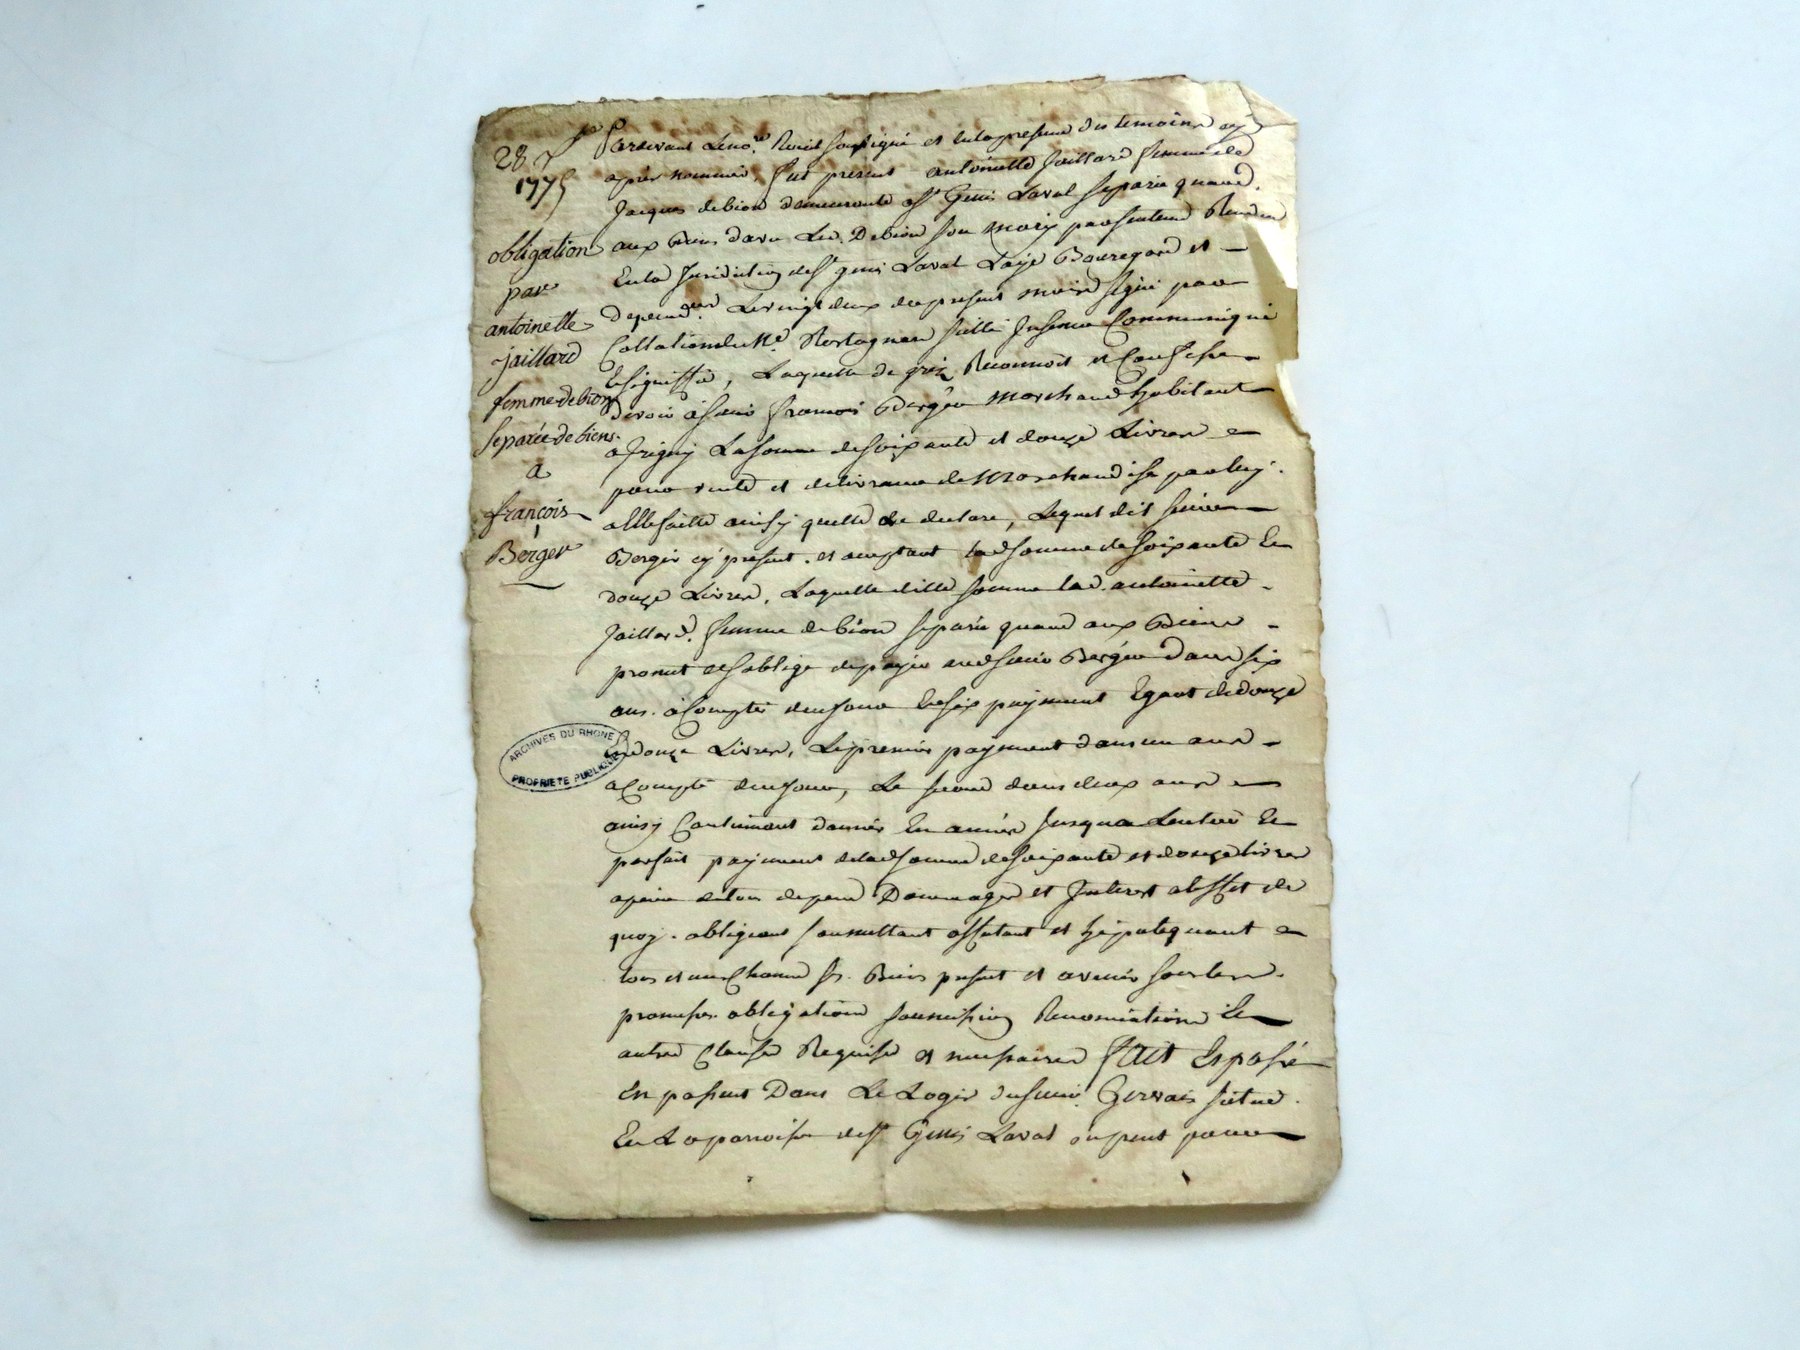 28 7bre
1775
obligation
par
antoinette
jaillard
femme debion
separée de biens
a
françois
Berger
ARCHIVES DU RHONE
PROPRIETE PUBLIQUE
Pardevant Leno.re Roial soussigné et en la presence des temoins cy
apres nommés, fut presente antoinette Jaillard femme de
Jacques debion demeurante a St Genis Laval separée quand
aux Biens davec Led. Debion son mary par sentence Rendue
En la Juridiction de St genis Laval Laye Bauregard et
depend.ces Le vingt deux du present mois signé par
Collation
signiffié, Laquelle de gré Reconnoit et Confesse
devoir à sieur francois Berger marchand habitant
a Irigny La somme de soixante et douze Livres
pour vente et delivrance de Marchandise par luy
a Elle faitte ainsy quelle le declare, Lequel dit sieur
Berger cy present et acceptant lad somme de soixante Et
douze Livres, Laquelle ditte somme lad. antoinette
Jaillard. femme debion separée quand aux Biens
promet et soblige de payer audsieur Berger dans six
ans a Compter de ce jour En six payement Egaux de douze
En douze Livres, Le premier payement dans un an
a Compter de ce jour, Le second dans deux ans
ainsy Continuant dannée En année Jusqua Lentier Et
parfait payement de lad somme de soixante et douze livres
a peine de tous depens Dommages et Interest a leffet de
quoy. obligeant soumettant affectant et hipotequant
tous et un Chacun ses Biens present et avenir sous les
promesses obligations soumission Renonciations Et
autres Clauses Requise et necessaires fait Et passé
En passant Dans Le Logis du sieur Gervais situé
En La paroisse de St Genis Laval